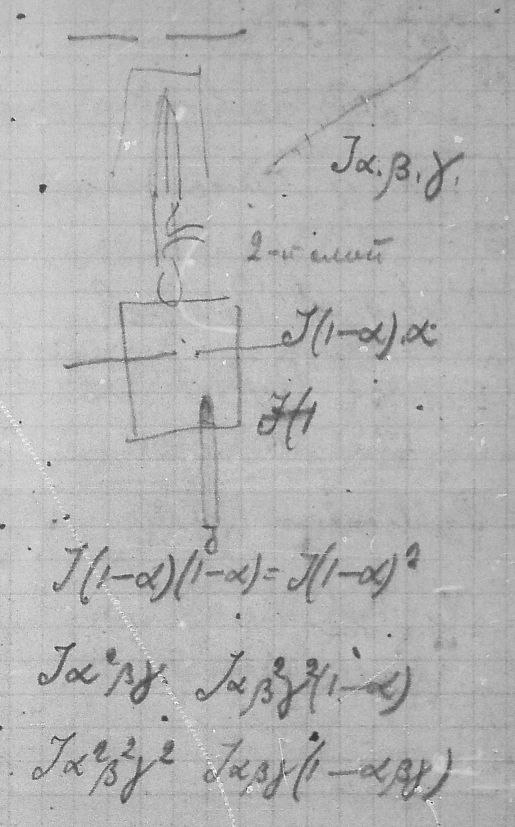 Jα.β.γ.
2-й слой
J(1-α).α
J(1
J
J(1-α)(1-α)=J(1-α)²
Jα²βγ Jαβ²γ²(1-α)
Jα²β²γ² Jαβγ(1-αβγ)